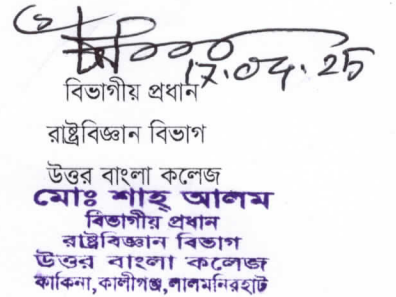 17.04.25
বিভাগীয় প্রধান
রাষ্ট্রবিজ্ঞান বিভাগ
উত্তর বাংলা কলেজ
মোঃ শাহ্ আলম
বিভাগীয় প্রধান
রাষ্ট্রবিজ্ঞান বিভাগ
উত্তর বাংলা কলেজ
কাকিনা,কালীগঞ্জ,লালমনিরহাট